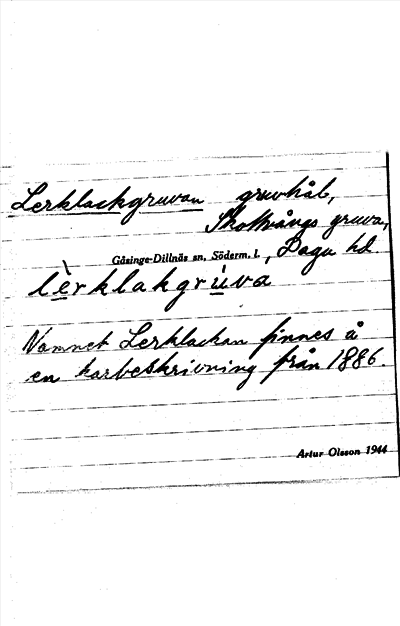 Lerklackgruvan gruvhål,
Skottvångs gruva,
Gåsinge-Dillnäs sn, Söderm. l., Daga hd
lèrklakgrùva
Namnet Lerklackan finnes å
en karbeskrivning från 1886.
Artur Olsson 1944